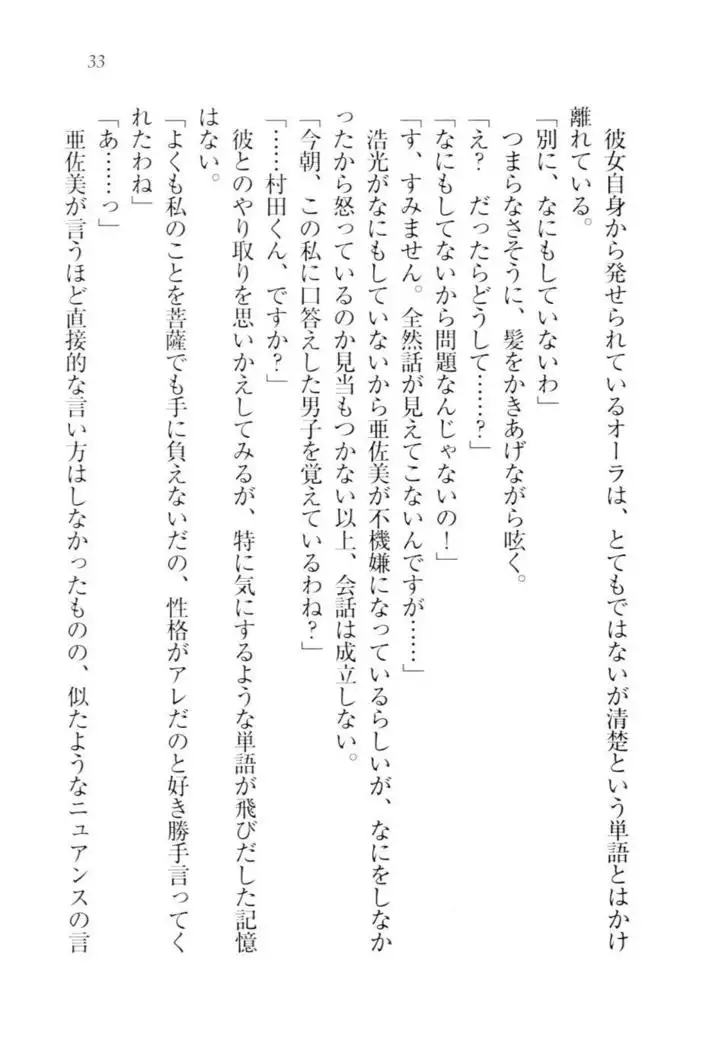 33
彼女自身から発せられているオーラは、とてもではないが清楚という単語とはかけ
離れている。
「別に、なにもしていないわ」
つまらなさそうに、髪をかきあげながら呟く。
「え？　だったらどうして……？」
「なにもしてないから問題なんじゃないの！」
「す、すみません。全然話が見えてこないんですが……」
浩光がなにもしていないから亜佐美が不機嫌になっているらしいが、なにをしなか
ったから怒っているのか見当もつかない以上、会話は成立しない。
「今朝、この私に口答えした男子を覚えているわね？」
「……村田くん、ですか？」
彼とのやり取りを思いかえしてみるが、特に気にするような単語が飛びだした記憶
はない。
「よくも私のことを菩薩でも手に負えないだの、性格がアレだのと好き勝手言ってく
れたわね」
「あ……っ」
亜佐美が言うほど直接的な言い方はしなかったものの、似たようなニュアンスの言